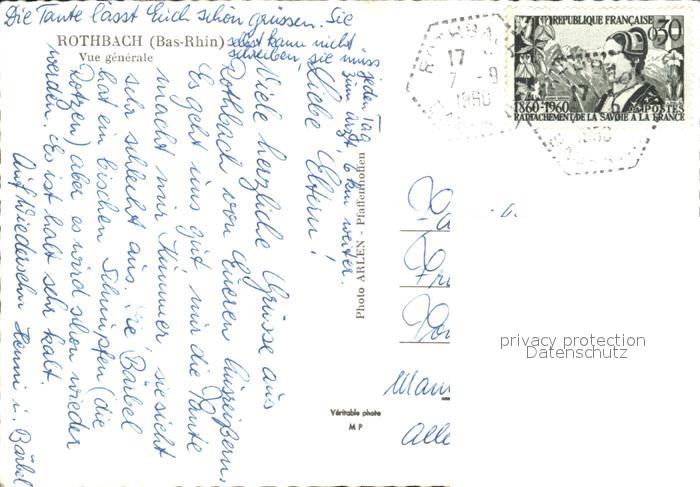 Die Tante lässt Euch schon grüssen. Sie
selbst kann nicht
schreiben, sie muss
jeden Tag
zum Arzt 6 km weiter.
ROTHBACH (Bas-Rhin)
Vue générale
Liebe Eltern!
Viele herzliche Grüsse aus
Rothbach von Eueren Ausreißern.
Es geht uns gut nur die Tante
macht mir Kummer sie sieht
sehr schlecht aus. Die Bärbel
hat ein bischen Schnupfen (die
Rotzen) aber es wird schon wieder
werden. Es ist halt sehr kalt.
Auf Wiedersehn Henni u. Bärbel
Photo ARLEN - Pfaffenhoffen
Véritable photo
M P
RÉPUBLIQUE FRANÇAISE
0,30
1860-1960
POSTES
RATTACHEMENT DE LA SAVOIE A LA FRANCE
17
7 - 9
1960
Mann
Alle
privacy protection
Datenschutz